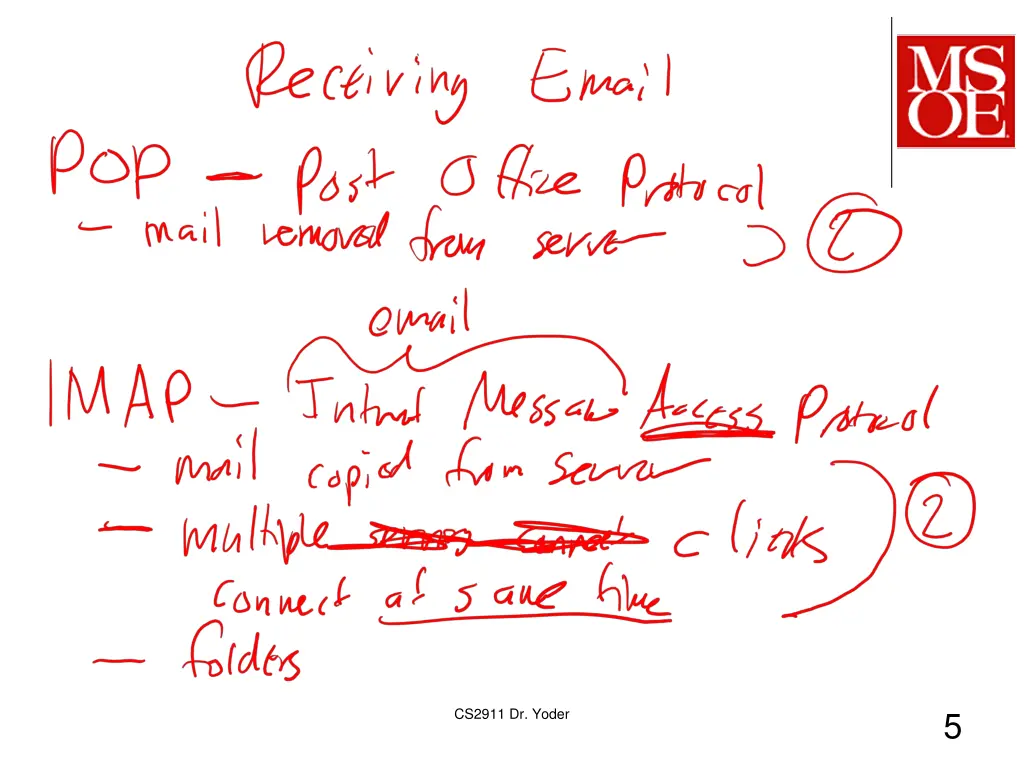 Receiving Email
MS
OE
POP - Post Office Protocol
- mail removed from server
email
IMAP - Message Access Protocol
- mail copied from server
- multiple clients
connect at same time
2
- folders
CS2911 Dr. Yoder
5